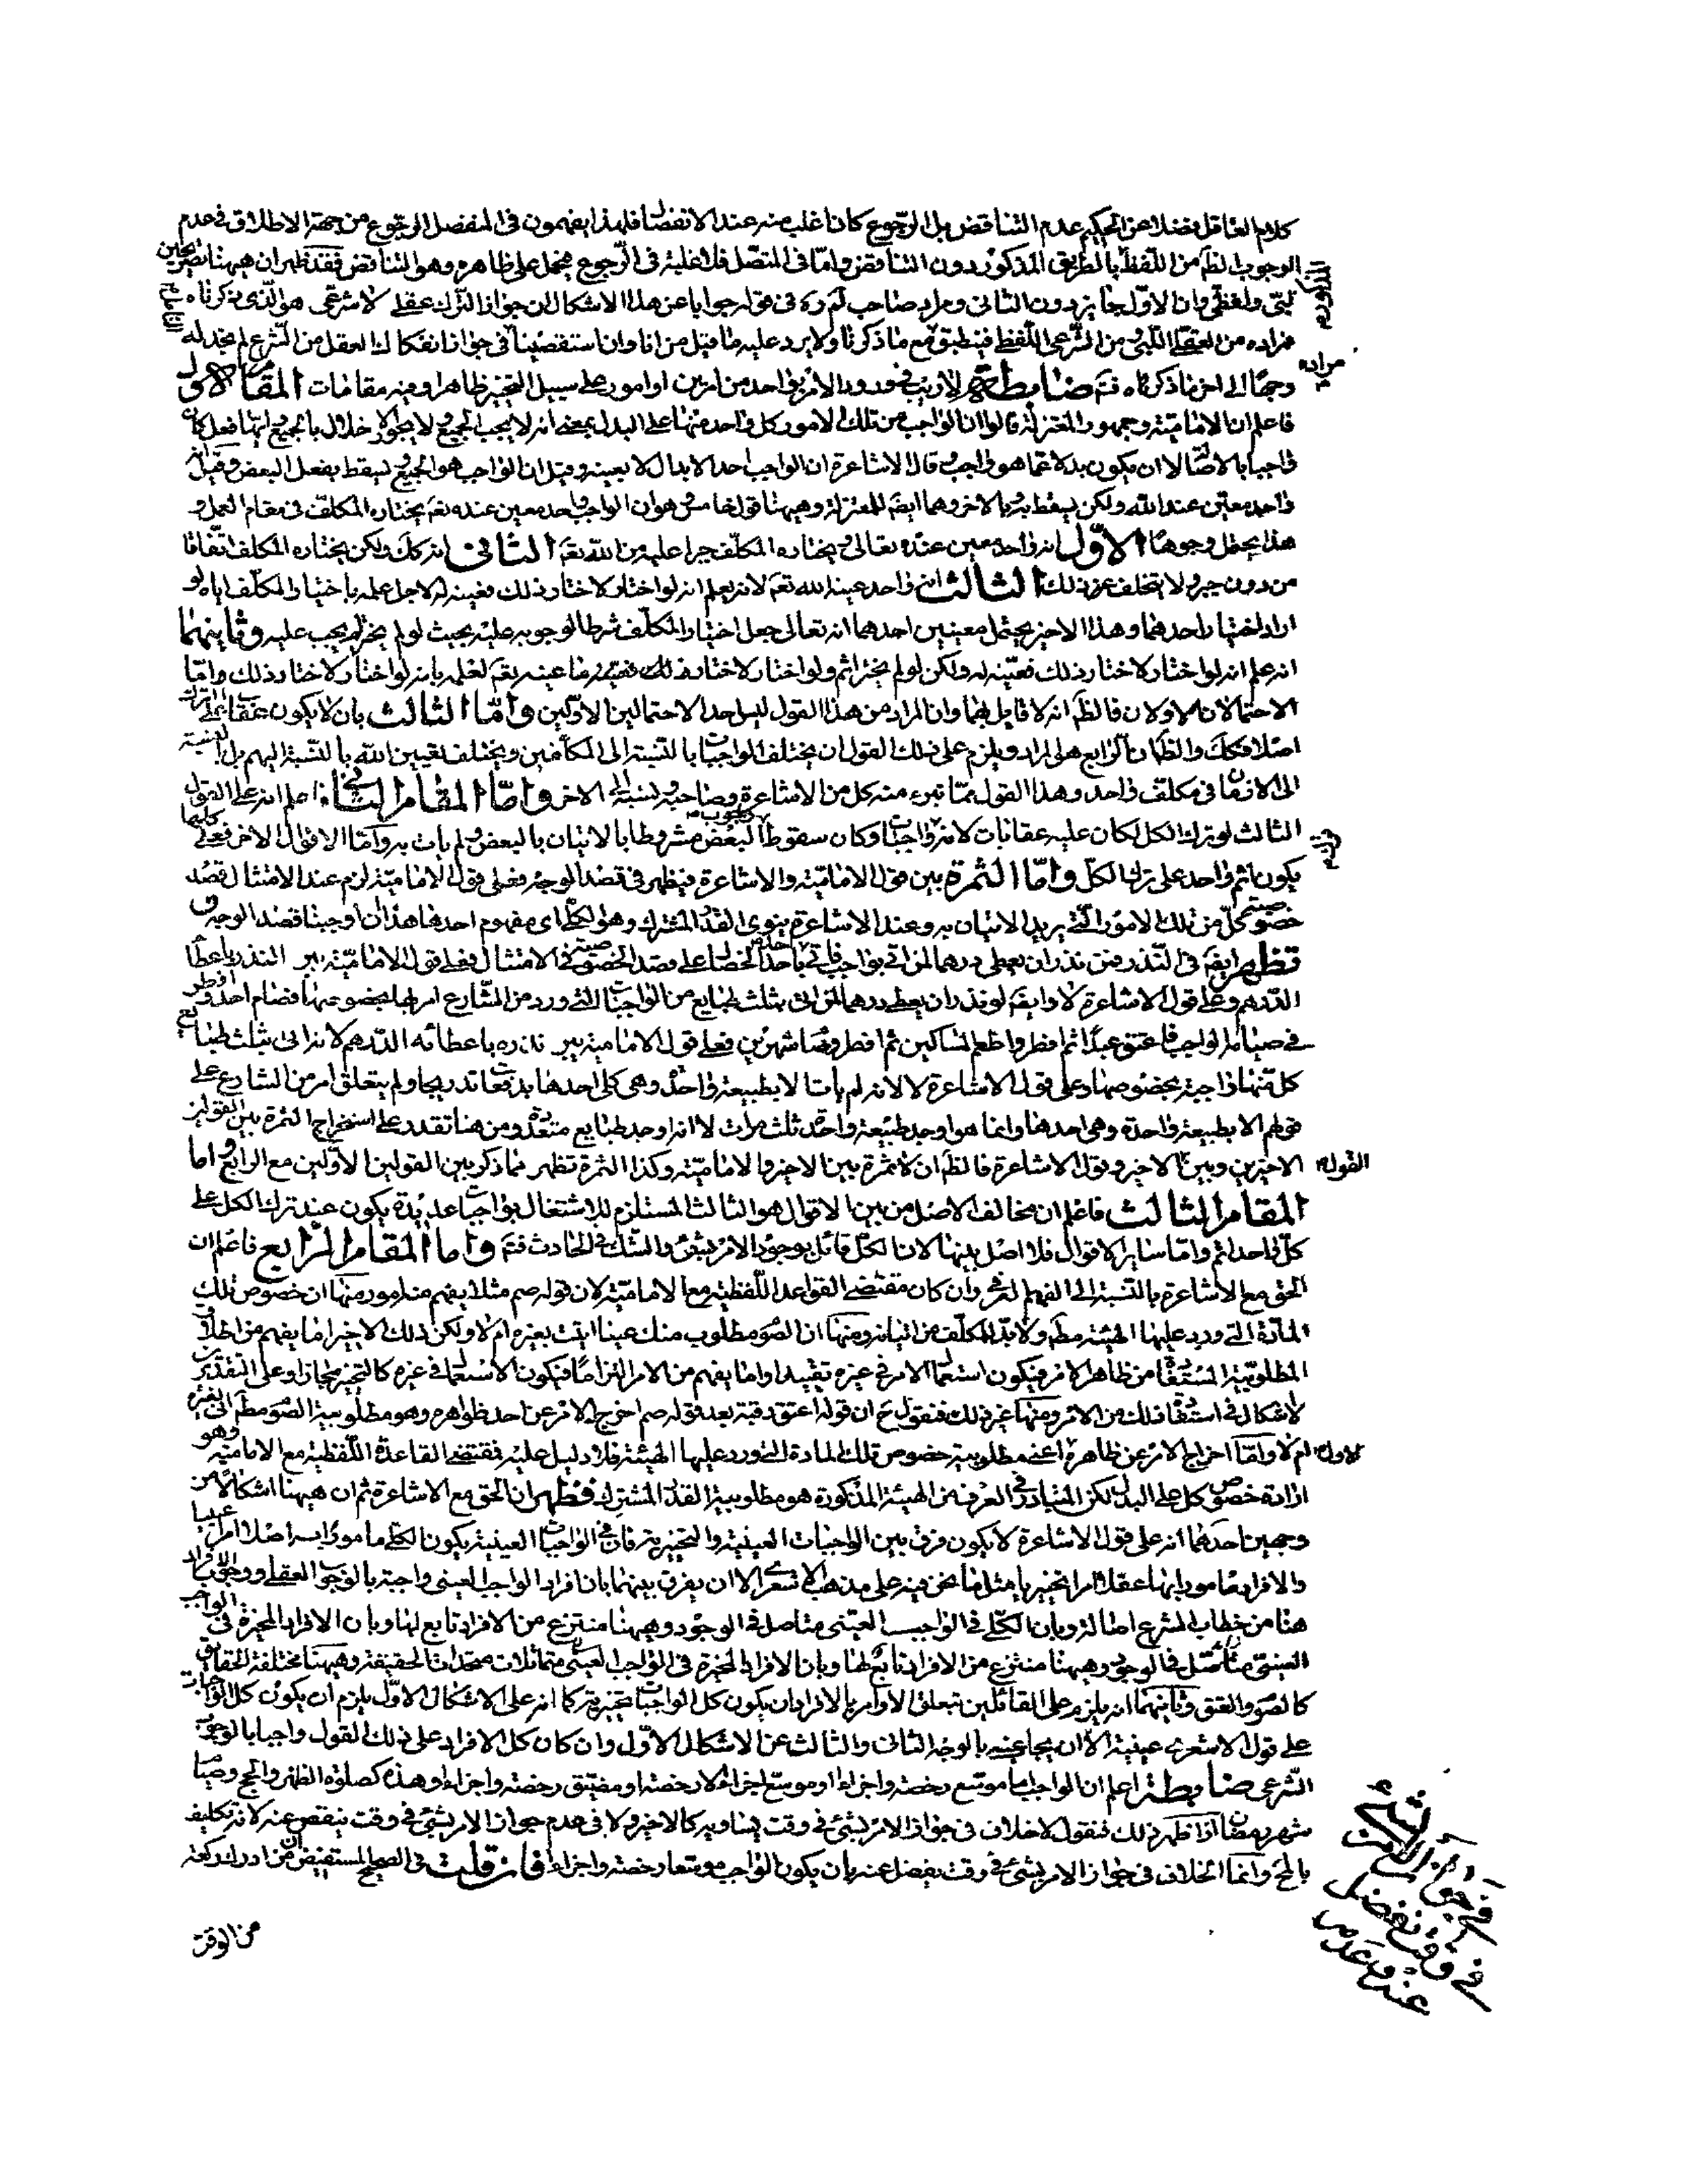 كلام العاقل فضلا عن الحكيم عدم التناقض بل الرجوع كان اغلب منه عند الانفصال فلهذا يفهمون فى المنفصل الرجوع من جهة الاطلاق فى عدم
الوجوب لظم من اللفظ بالطريق المذكور دون التناقض واما فى المتصل فلا غلبة فى الرجوع فيحمل على ظاهره وهو التناقض فقد ظهر ان ههنا تصريحين
لبّى ولفظى وان الاول جايز دون الثانى ومراد صاحب لم ره فى قوله جوابا عن هذا الاشكال ان جواز الترك عقلى لا شرعى هو الذى ذكرناه
فمراده من العقلى اللبّى من الشرعى اللفظى فينطبق مع ما ذكرنا ولا يرد عليه ما قيل من انا وان استقصينا فى جواز انفكاك العقل من الشرع لم نجد له
وجها الى اخر ما ذكرناه فتم ضابطة لا ريب فى ورود الامر بواحد من امرين او امور على سبيل التخيير ظاهرا وفيه مقامات المقام الاول
فاعلم ان الامامية وجمهور المعتزلة قالوا ان الواجب من تلك الامور كل واحد منها على البدل بمعنى انه لا يجب الجميع ولا يجوز الاخلال بالجميع ايها فعل كان
واجبا بالاصالة لا ان يكون بدلا عما هو واجب وقال الاشاعرة ان الواجب احد الابدال لا بعينه وقيل ان الواجب هو الجميع ويسقط بفعل البعض وقيل انه
واحد معين عند الله ولكن يسقط به وبالاخر وهما ايضا للمعتزلة وههنا قول خامس هو ان الواجب واحد معين عنده تعم يختاره المكلف فى مقام العمل و
هذا يحتمل وجوها الاول انه واحد معين عنده تعالى ويختاره المكلف جبرا عليه من الله تعم الثانى انه كك ولكن يختاره المكلف اتفاقا
من دون جبر ولا يتخلف عن ذلك الثالث انه واحد عينه الله تعم لانه يعلم انه لو اختار لاختار ذلك فعينه له لاجل علمه باختيار المكلف اياه لو
اراد اختيار احدهما وهذا الاخير يحتمل معنيين احدهما انه تعالى جعل اختيار المكلف شرطا لوجوبه عليه بحيث لو لم يختر لم يجب عليه وثانيهما
انه علم انه لو اختار لاختار ذلك فعينه له ولكن لو لم يختر اثم ولو اختار لاختار ذلك فعين ما عينه تعم لعلمه بانه لو اختار لاختار ذلك واما
الاحتمالان الاولان فالظم انه لا قايل بهما وان المراد من هذا القول ليس احد الاحتمالين الاولين واما الثالث بان لا يكون عقاب على الترك
اصلا فكك والظم ان الرابع هو المراد ويلزم على ذلك القول ان يختلف الواجبات بالنسبة الى المكلفين ويختلف تعيين الله بالنسبة اليهم بل بالنسبة
الى الازمان فى مكلف واحد وهذا القول مما تبرء منه كل من الاشاعرة وصاحبه ونسبه الى الاخر واما المقام الثانى فاعلم انه على القول
الثالث لو ترك الكل لكان عليه عقابات لانه ترك واجبات وكان سقوط وجوب البعض مشروطا بالاتيان بالبعض ولم يات به واما الاقوال الاخر فعلى كلها
يكون اثم واحد على ترك الكل واما الثمرة بين قول الامامية والاشاعرة فيظهر فى قصد الوجه فعلى قول الامامية لزم عند الامتثال قصد
خصوصية كل من تلك الامور التى يريد الاتيان به وعند الاشاعرة ينوى القدر المشترك وهو الكلى اى مفهوم احدهما هذا ان اوجبنا قصد الوجه و
تظهر ايضا فى النذر فمن نذر ان يعطى درهما لمن اتى بواجب فاتى باحد الخصال على قصد الخصوصية فى الامتثال فعلى قول الامامية يبر النذر باعطاء
الدرهم وعلى قول الاشاعرة لا وايضا لو نذر ان يعطى درهما لمن اتى بثلث طبايع من الواجبات التى ورد من الشارع امر بها بخصوصها فصام احد وافطر
فى صيام الواجب فاعتق عبدا ثم افطر واطعم المساكين ثم افطر وصام شهرين فعلى قول الامامية يبر نذره باعطائه الدرهم لانه اتى بثلث طبايع
كل منها واجبة بخصوصها وعلى قول الاشاعرة لا لانه لم يات الا بطبيعة واحدة وهى كلى احدها بدفعات تدريجا ولم يتعلق امر من الشارع على
قولهم الا بطبيعة واحدة وهى احدها وانما هو اوجد طبيعة واحدة ثلث مرات لا انه اوجد طبايع متعددة ومن هنا تقدر على استخراج الثمرة بين القولين
الاخيرين وبين الاخير وقول الاشاعرة فالظم ان لا ثمرة بين الاخير والامامية وكذا الثمرة تظهر مما ذكر بين القولين الاولين مع الرابع واما
المقام الثالث فاعلم ان مخالف الاصل من بين الاقوال هو الثالث المستلزم للاشتغال بواجبات عديدة يكون عند ترك الكل على
كل واحد اثم واما ساير الاقوال فلا اصل بينها لان الكل قائل بوجود الامر بشئ والشك فى الحادث فتم واما المقام الرابع فاعلم ان
الحق مع الاشاعرة بالنسبة الى الفهم العرفى وان كان مقتضى القواعد اللفظية مع الامامية لان قوله صم مثلا يفهم منه امور منها ان خصوص تلك
المادة التى ورد عليها الهيئة مطم ولا بد للمكلف من اتيانه ومنها ان الصوم مطلوب منك عينا اتيت بغيره ام لا ولكن ذلك الاخير اما يفهم من اطلاق
المطلوبية المستفادة من ظاهر الامر فيكون استعمال الامر فى غيره تقييدا واما يفهم من الامر التزاما فيكون الاستعمال فى غيره كالتخيير مجازا وعلى التقديرين
لا شكال فى استفادة ذلك من الامر ومنها غير ذلك فنقول ح ان قوله اعتق رقبة بعد قوله صم اخرج الامر عن احد ظواهره وهو مطلوبية الصوم مطم اتى بغيره
ام لا واما اخراج الامر عن ظاهره الاول اعنى مطلوبية خصوص تلك المادة التى ورد عليها الهيئة فلا دليل عليه فمقتضى القاعدة اللفظية مع الامامية وهو
ارادة خصوص كل على البدل لكن المتبادر فى العرف من الهيئة المذكورة هو مطلوبية القدر المشترك فظهر ان الحق مع الاشاعرة ثم ان ههنا اشكالا من
وجهين احدهما انه على قول الاشاعرة لا يكون فرق بين الواجبات العينية والتخييرية فان فى الواجبات العينية يكون الكلى مامورا به اصلا امرا عينيا
والافراد مامورا بها عقلا امرا تخييريا مثل ما نحن فيه على مذهب الاشعرى الا ان يفرق بينهما بان افراد الواجب العينى واجبة بالوجوب العقلى ووجوب الافراد
هنا من خطاب الشرع اصالة وبان الكلى فى الواجب العينى متاصل فى الوجود وههنا منتزع من الافراد تابع لها وبان الافراد المخيرة فى الواجب
العينى متاصل فى الوجود وههنا منتزع من الافراد تابع لها وبان الافراد المخيرة فى الواجب العينى متماثلات متحدات الحقيقة وههنا مختلفة الحقايق
كالصوم والعتق وثانيهما انه يلزم على القائلين بتعلق الاوامر بالافراد ان يكون كل الواجبات تخييرية كما انه على الاشكال الاول يلزم ان يكون كل الواجبات
على قول الاشعرى عينية الا ان يجاب عنه بالوجه الثانى والثالث عن الاشكال الاول وان كان كل الافراد على ذلك القول واجبا بالوجوب
الشرعى ضابطة اعلم ان الواجب اما موسع رخصة واجزاء او موسع اجزاء لا رخصة او مضيق رخصة واجزاء وهذه كصلوة الظهر والحج وصيام
شهر رمضان اذا ظهر ذلك فنقول لا خلاف فى جواز الامر بشئ فى وقت يساويه كالاخير ولا فى عدم جواز الامر بشئ فى وقت ينقص عنه لانه تكليف
بالمح وانما الخلاف فى جواز الامر بشئ فى وقت يفضل عنه بان يكون الواجب موسعا رخصة واجزاء فان قلت فى الصحيح المستفيض ان من ادرك ركعة
من الوقت
فى جواز الامر بشئ
فى وقت يفضل
عنه وعدمه